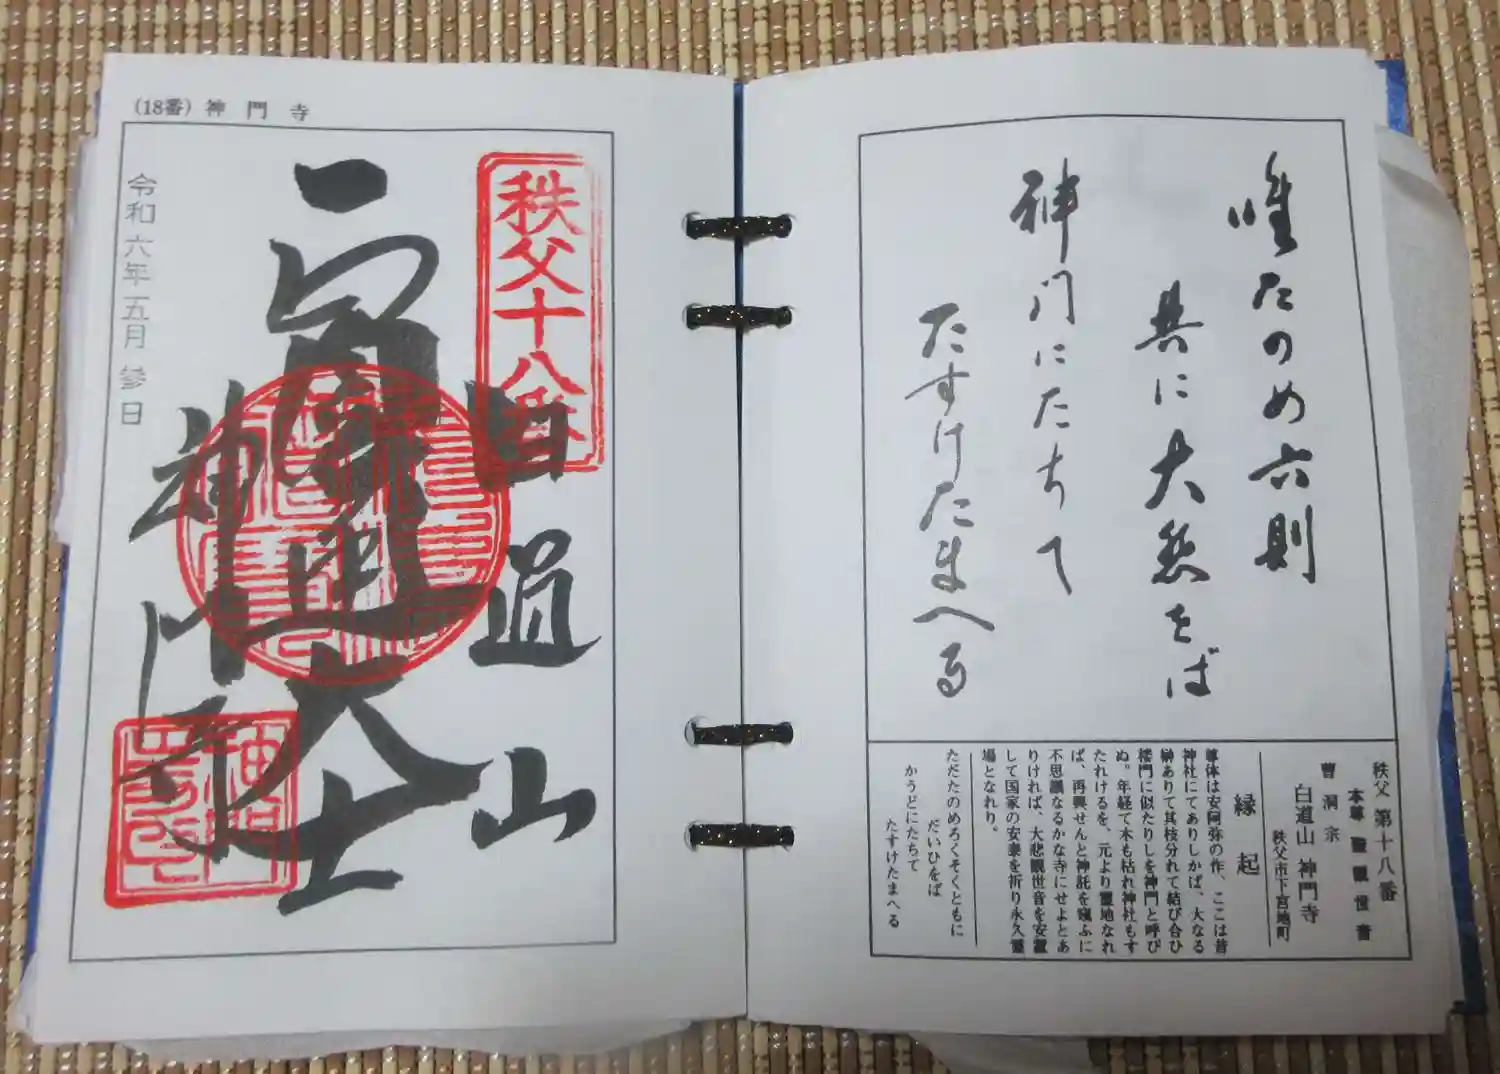 唯たのめ六則
共に大悲をば
神門にたちて
たすけたまへる
秩父 第十八番
本尊 聖観世音
曹洞宗
白道山 神門寺
秩父市下宮地町
縁起
尊体は安阿弥の作、ここは昔
神社にてありしかば、大なる
榊ありて其枝分れて結び合ひ
楼門に似たりしを神門と呼び
ぬ。年経て木も枯れ神社もす
たれけるを、元より霊地なれ
ば、再興せんと神託を窺ふに
不思議なるかな寺にせよとあ
りければ、大悲観世音を安置
して国家の安泰を祈り永久霊
場となれり。
ただたのめろくそくともに
だいひをば
かうどにたちて
たすけたまへる
(18番) 神門寺
秩父十八番
白道山
大士
神門寺
令和六年五月参日